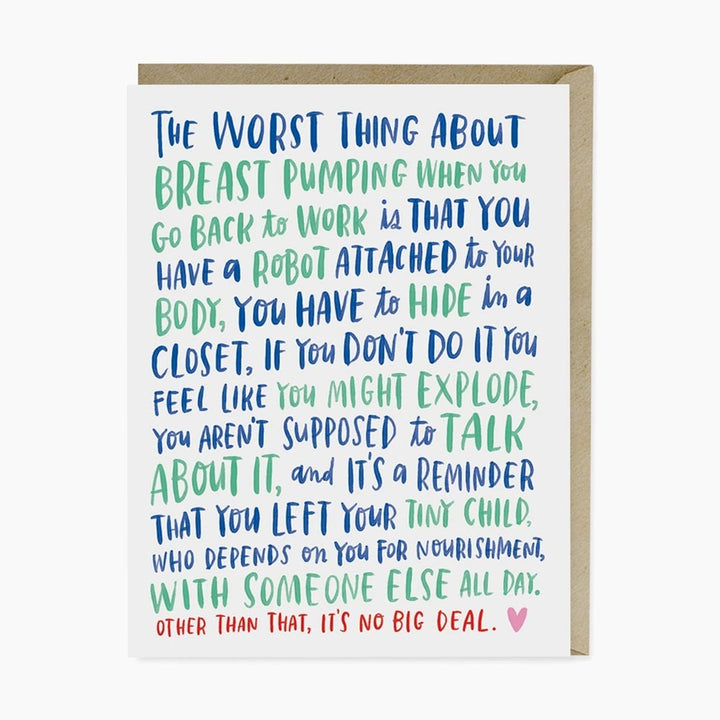 THE WORST THING ABOUT
BREAST PUMPING WHEN YOU
GO BACK to WORK is THAT YOU
HAVE a ROBOT ATTACHED to YOUR
BODY, YOU HAVE to HIDE in a
CLOSET, IF YOU DON'T DO IT YOU
FEEL LIKE YOU MIGHT EXPLODE,
YOU AREN'T SUPPOSED to TALK
ABOUT IT, and IT'S a REMINDER
THAT YOU LEFT YOUR TINY CHILD,
WHO DEPENDS on YOU FOR NOURISHMENT,
WITH SOMEONE ELSE ALL DAY.
OTHER THAN THAT, IT'S NO BIG DEAL.